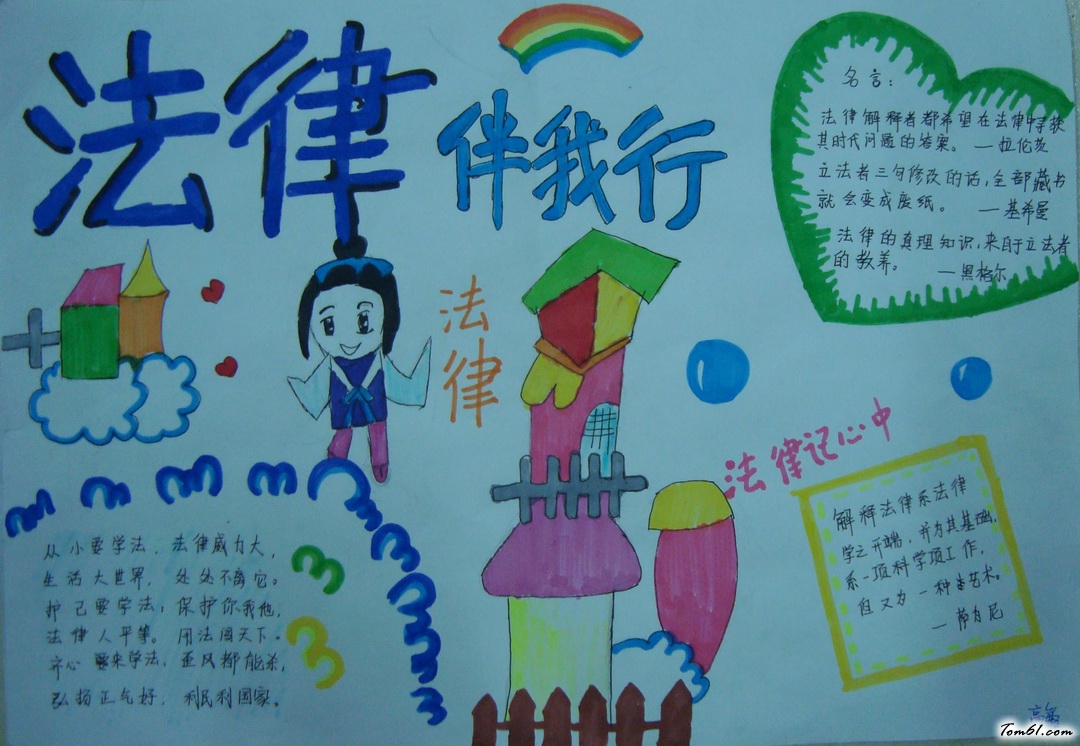 法律
伴我行
名言:
法律解释者都希望在法律中寻获
其时代问题的答案。 —拉伦茨
立法者三句修改的话,全部藏书
就会变成废纸。 —基希曼
法律的真理知识,来自于立法者
的教养。 —黑格尔
法
律
法律记心中
解释法律系法律
学之开端,并为其基础,
系一项科学项工作,
但又为一种艺术。
—萨内尼
从小要学法,法律威力大,
生活大世界,处处不离它。
护己要学法,保护你我他,
法律人平等。用法闯天下。
齐心要来学法,歪风都能杀,
弘扬正气好,利民利国家。
Tom61.com